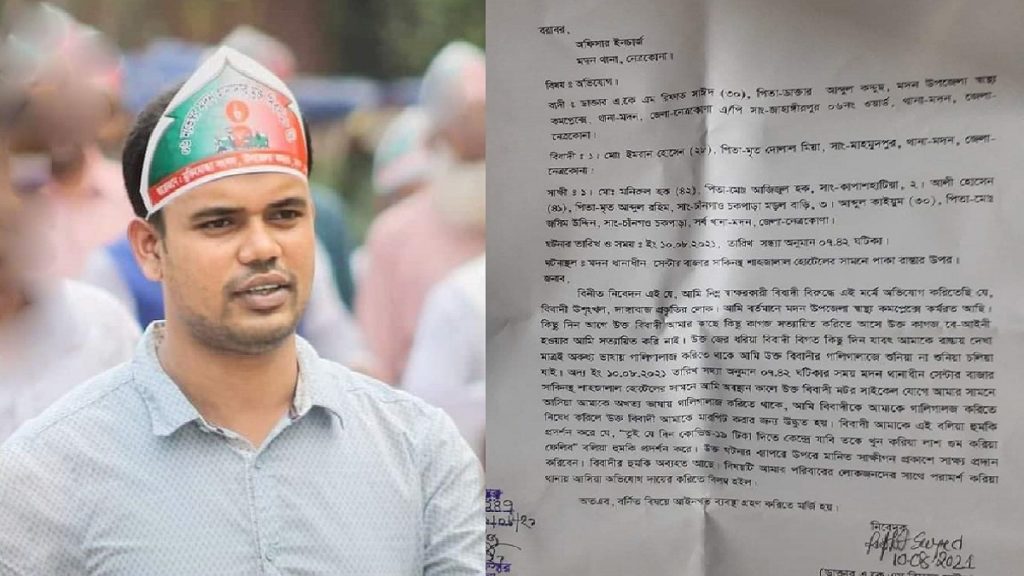 বরাবর,
অফিসার ইনচার্জ
মদন থানা, নেত্রকোনা।
বিষয় : অভিযোগ।
বাদী : ডাক্তার এ.কে এম রিফাত সাঈদ (৩০), পিতা-ডাক্তার আব্দুল কদ্দুছ, মদন উপজেলা স্বাস্থ্য
কমপ্লেক্সে, থানা-মদন, জেলা-নেত্রকোণা এ/পি সাং-জাহাঙ্গীরপুর ০৬নং ওয়ার্ড, থানা-মদন, জেলা-
নেত্রকোনা।
বিবাদী : ১। মোঃ ইমরান হোসেন (২৮), পিতা-মৃত দোলাল মিয়া, সাং-মাহমুদপুর, থানা-মদন, জেলা-
নেত্রকোনা।
সাক্ষী : ১। মোঃ মনিরুল হক (৪২), পিতা-মোঃ আজিজুল হক, সাং-কাপাশহাটিয়া, ২। আলী হোসেন
(৪১), পিতা-মৃত আব্দুল রহিম, সাং-চাঁনগাও চকপাড়া মড়ল বাড়ি, ৩। আব্দুল কাইয়ুম (৩০), পিতা-মোঃ
জসিম উদ্দিন, সাং-চাঁনগাও চকপাড়া, সর্ব থানা-মদন, জেলা-নেত্রকোণা।
ঘটনার তারিখ ও সময় : ইং ১০.০৮.২০২১, তারিখ সন্ধ্যা অনুমান ০৭.৪২ ঘটিকা।
ঘটনাস্থল : মদন থানাধীন সেন্টার বাজার সকিনস্থ শাহজালাল হোটেলের সামনে পাকা রাস্তার উপর।
জনাব,
বিনীত নিবেদন এই যে, আমি নিম্ন স্বাক্ষরকারী বিবাদী বিরুদ্ধে এই মর্মে অভিযোগ করিতেছি যে,
বিবাদী উশৃংখল, দাঙ্গাবাজ প্রকৃতির লোক। আমি বর্তমানে মদন উপজেলা স্বাস্থ্য কমপ্লেক্সে কর্মরত আছি।
কিছু দিন আগে উক্ত বিবাদী আমার কাছে কিছু কাগজ সত্যায়িত করিতে আসে উক্ত কাগজ বে-আইনী
হওয়ার আমি সত্যায়িত করি নাই। উক্ত জের ধরিয়া বিবাদী বিগত কিছু দিন যাবৎ আমাকে রাস্তায় দেখা
মাত্রই অকথ্য ভাষায় গালিগালাজ করিতে থাকে আমি উক্ত বিবাদীর গালিগালাজে শুনিয়া না শুনিয়া চলিয়া
যাই। অদ্য ইং ১০.০৮.২০২১ তারিখ সন্ধ্যা অনুমান ০৭.৪২ ঘটিকার সময় মদন থানাধীন সেন্টার বাজার
সকিনস্থ শাহজালাল হোটেলের সামনে আমি অবস্থান কালে উক্ত বিবাদী মটর সাইকেল যোগে আমার সামনে
আসিয়া আমাকে অকথ্য ভাষায় গালিগালাজ করিতে থাকে, আমি বিবাদীকে আমাকে গালিগালাজ করিতে
নিষেধ করিলে উক্ত বিবাদী আমাকে মারপিট করার জন্য উদ্ধত হয়। বিবাদী আমাকে এই বলিয়া হুমকি
প্রদর্শন করে যে, "তুই যে দিন কোভিড-১৯ টিকা দিতে কেন্দ্রে যাবি তকে খুন করিয়া লাশ গুম করিয়া
ফেলিব" বলিয়া হুমকি প্রদর্শন করে। উক্ত ঘটনার ব্যাপারে উপরে মানিত সাক্ষীগন প্রকাশে সাক্ষ্য প্রদান
করিবেন। বিবাদীর হুমকি অব্যহত আছে। বিষয়টি আমার পরিবারের লোকজনদের সাথে পরামর্শ করিয়া
থানায় আসিয়া অভিযোগ দায়ের করিতে বিলম্ব হইল।
অতএব, বর্নিত বিষয়ে আইনগত ব্যবস্থা গ্রহণ করিতে মর্জি হয়।
নিবেদক
10.08.2021
(ডাক্তার এ.কে এম